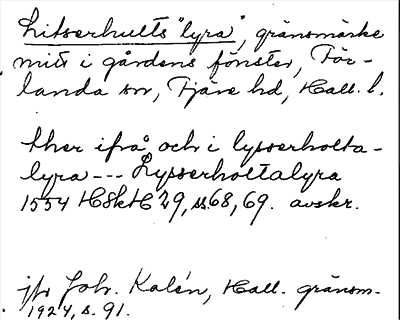 Litserhults "lyra", gränsmärke
mitt i gårdens fönster, För-
landa sn, Fjäre hd, Hall. l.
ther ifrå och i lysserholta-
lyra --- Lysserholtalyra
1554 HSkH 29, s. 68, 69. avskr.
jfr Joh. Kalén, Hall. gränsm.
1924, s. 91.